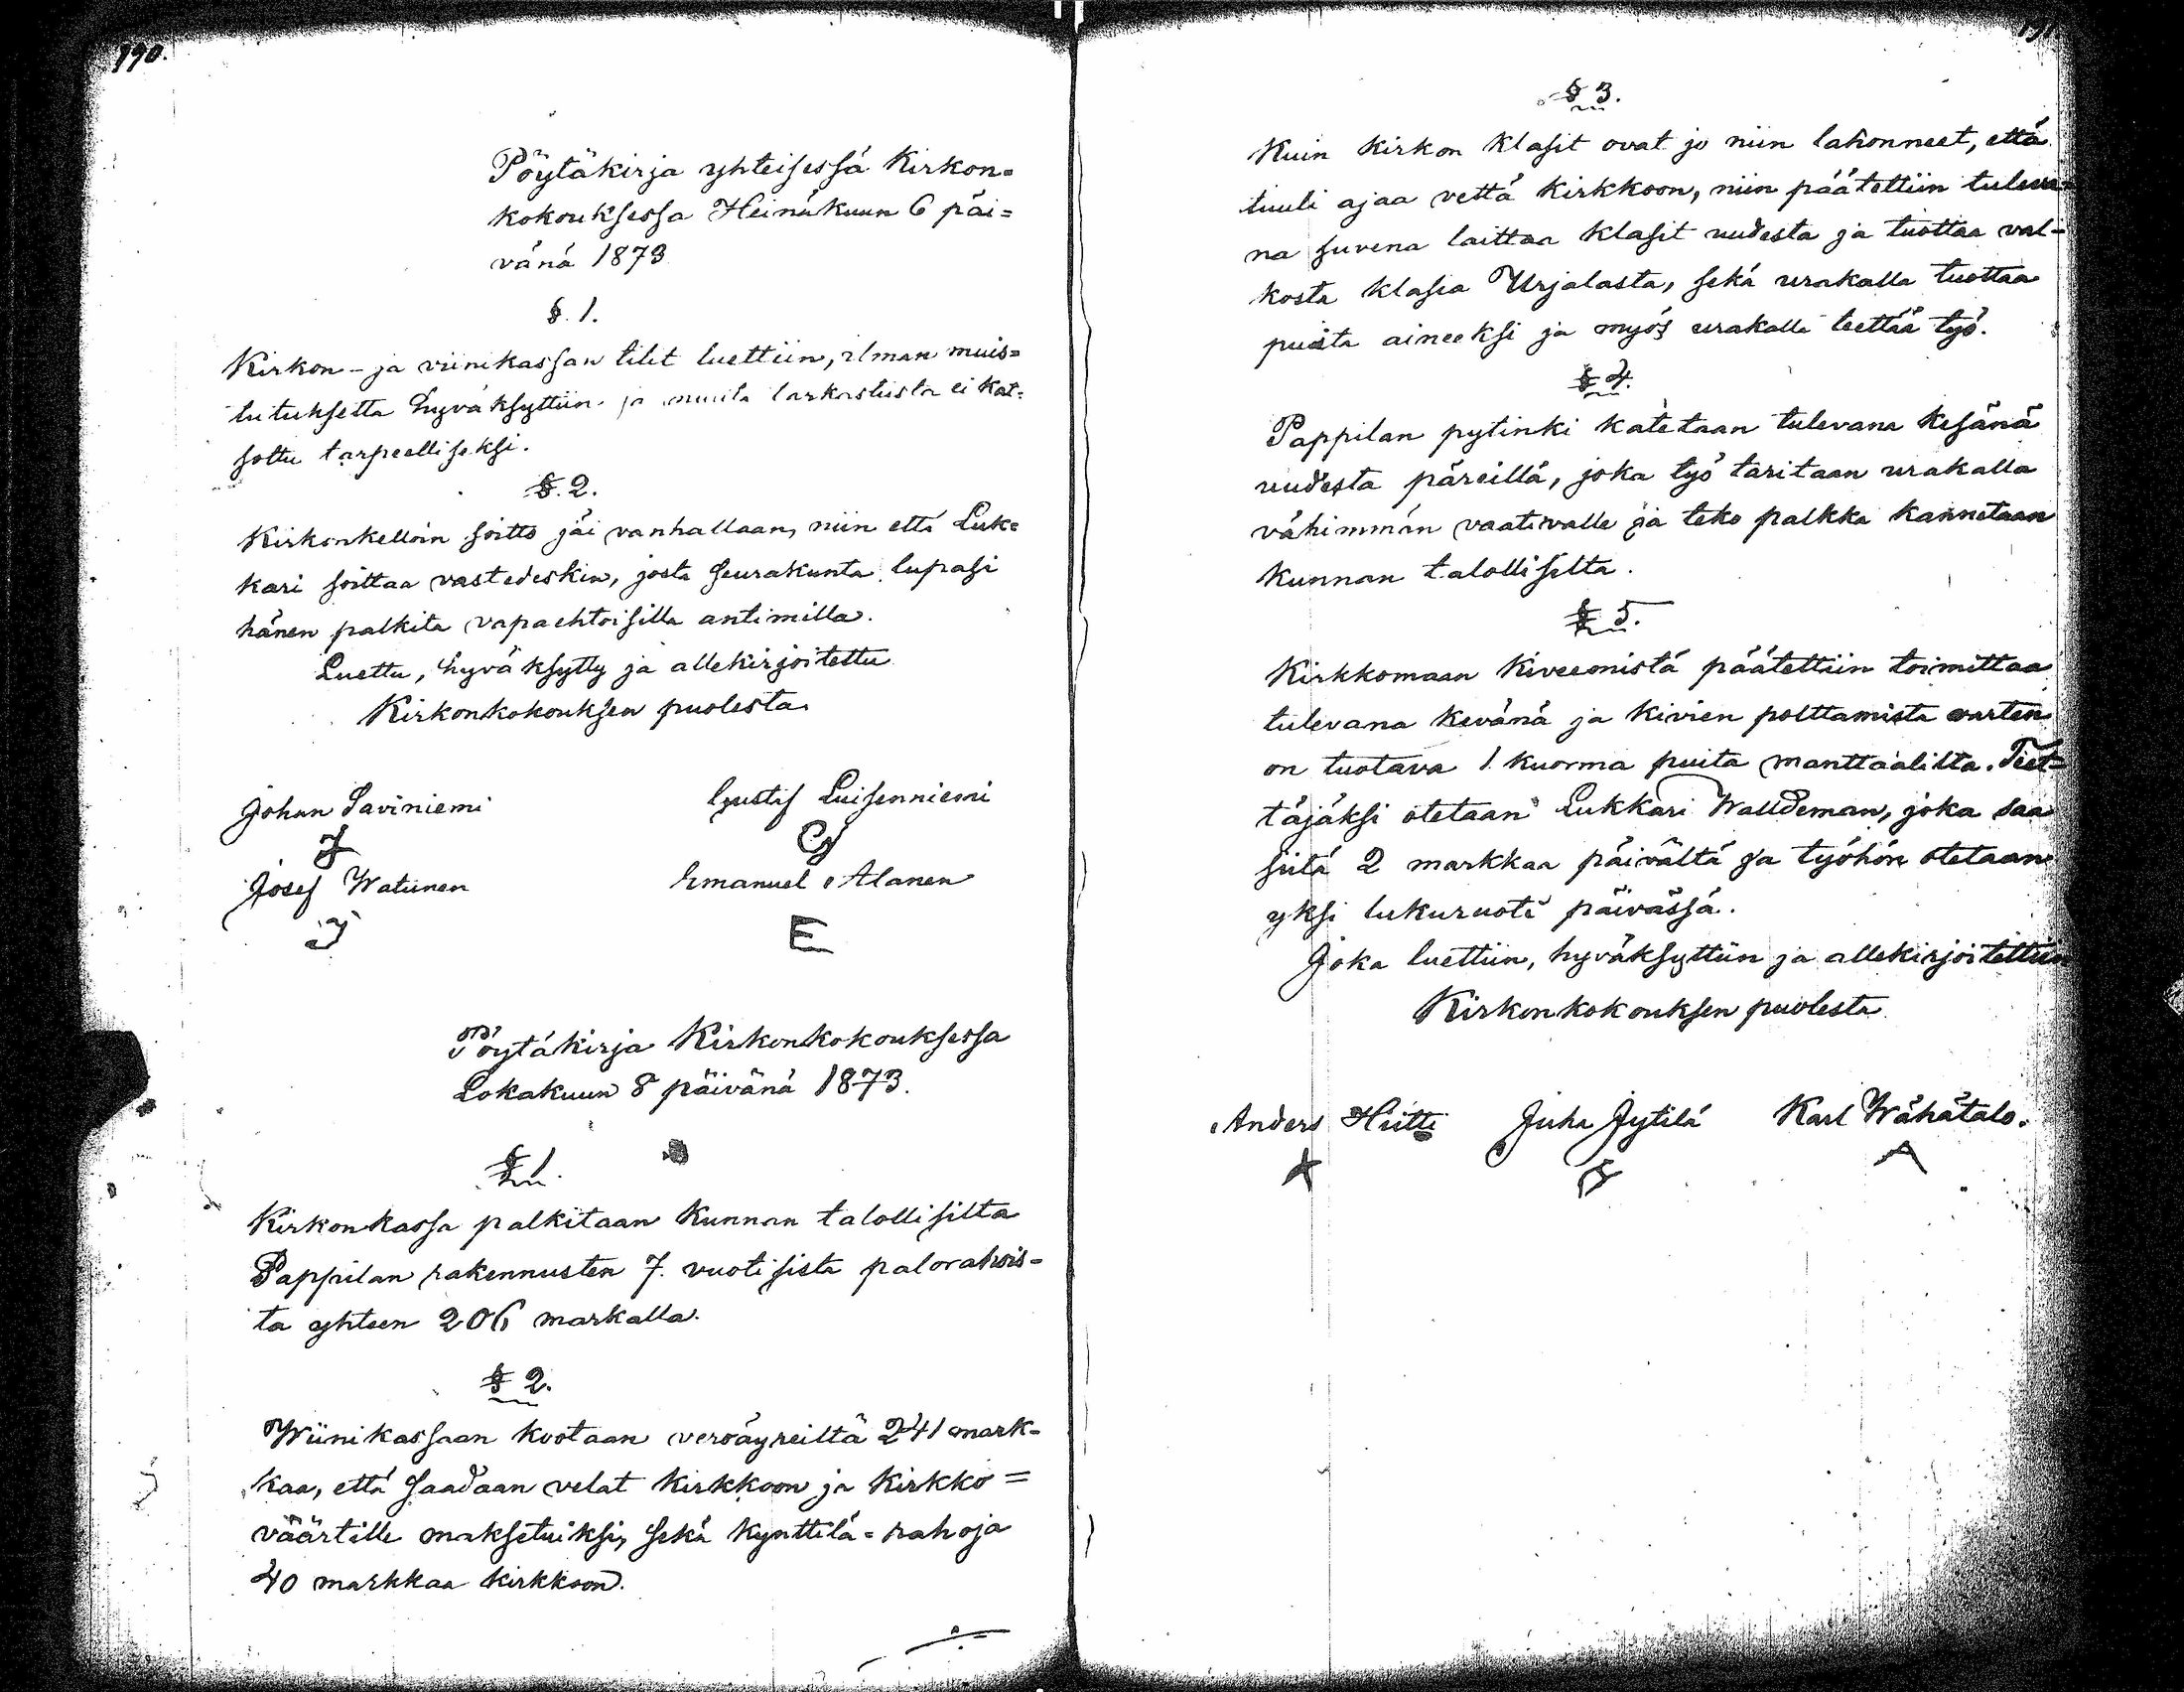 190.
Pöytäkirja yhteisessä Kirkon=
kokouksessa Heinäkuun 6 päi=
vänä 1873
§. 1.
Kirkon- ja viinikassan tilit luettiin, ilman muis=
tutuksetta hyväksyttiin ja muuta tarkastusta ei kat=
sottu tarpeelliseksi.
§. 2.
Kirkonkelloin soitto jäi vanhallaan, niin että Luk=
kari soittaa vastedeskin, josta seurakunta lupasi
hänen palkita vapaehtoisilla antimilla.
Luettu, hyväksytty ja allekirjoitettu
Kirkonkokouksen puolesta
Johan Saviniemi Gustaf Luisenniemi
Josef Watunen Emanuel Alanen
J E
Pöytäkirja Kirkonkokouksessa
Lokakuun 8 päivänä 1873.
§ 1.
Kirkonkassa palkitaan Kunnan talollisilta
Pappilan rakennusten 7. vuotisista palorahois-
ta yhteen 206 markalla.
§ 2.
Wiinikassaan kootaan veroäyreiltä 241 mark-
kaa, että saadaan velat kirkkoon ja kirkko=
väärtille maksetuiksi, sekä kynttilä=rahoja
40 markkaa kirkkoon.
191
§ 3.
Kuin kirkon klasit ovat jo niin lahonneet, että
tuuli ajaa vettä kirkkoon, niin päätettiin tuleva=
na suvena laittaa klasit uudesta ja tuottaa val-
kosta klasia Urjalasta, sekä urakalla tuottaa
puita aineeksi ja myös urakalla teettää työ.
§ 4.
Pappilan pytinki katetaan tulevana kesänä
uudesta päreillä, joka työ taritaan urakalla
vähimmän vaativalle ja teko palkka kannetaan
kunnan talollisilta.
§ 5.
Kirkkomaan kiveemistä päätettiin toimittaa
tulevana kevänä ja kivien polttamista varten
on tuotava 1 kuorma puita manttaalilta. Teet=
täjäksi otetaan Lukkari Walldeman, joka saa
siitä 2 markkaa päivältä ja työhön otetaan
yksi lukuruoti päivässä.
Joka luettiin, hyväksyttiin ja allekirjoitettiin
Kirkonkokouksen puolesta
Anders Hiitti Juha Jytilä Karl Wähätalo.